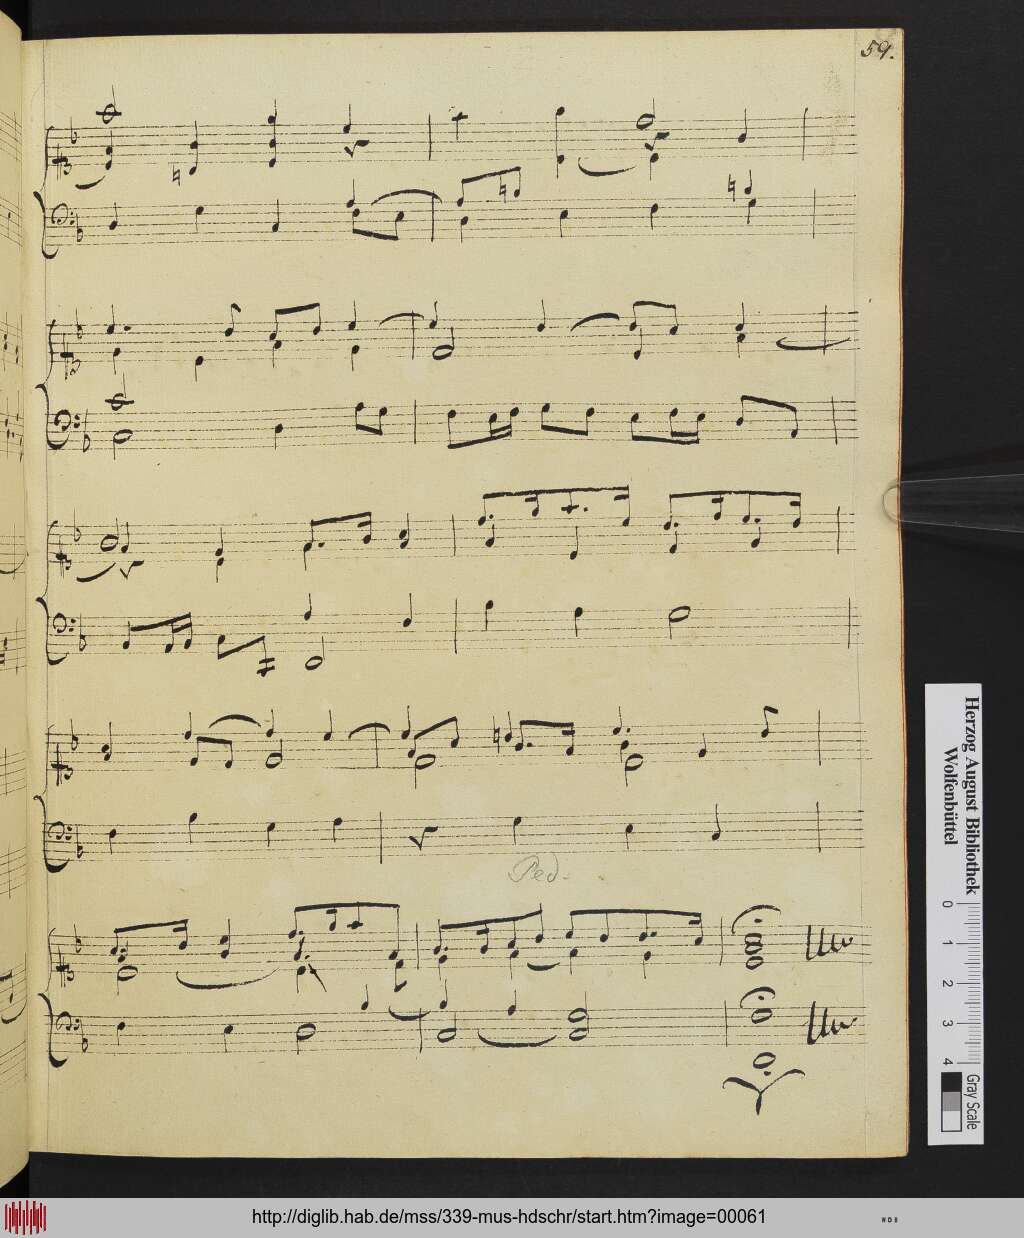 59.
Ped.
Herzog August Bibliothek
Wolfenbüttel
0 1 2 3 4
Gray Scale
http://diglib.hab.de/mss/339-mus-hdschr/start.htm?image=00061